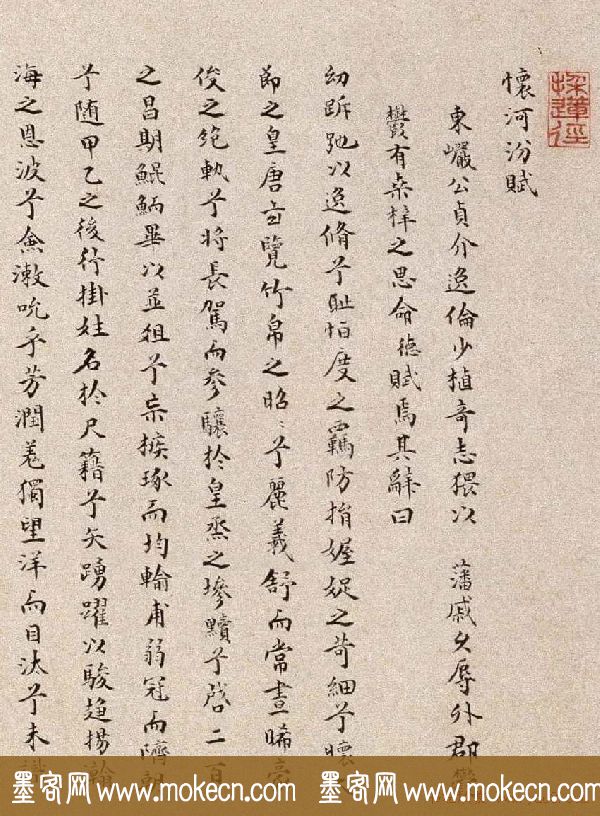 採蓮徑
懷河汾賦
東巘公貞介逸倫少植奇志猥以 藩戚久辱外郡
鬱有桑梓之思命德賦焉其辭曰
幼跅弛以逸脩兮恥怕度之羈防捐媉娖之苛細兮懷
節之皇唐玄覽竹帛之昭〻兮麗羲舒而常晝晞
俊之絶軌兮將長駕而參驤於皇烝之墋黷兮啓二百
之昌期鯤鮞畢以並徂兮宗
琢而均輪甫弱冠而隮
兮隨甲乙之後行掛姓名於尺籍兮矢踴躍以駿趨揚
海之恩波兮僉漱吮乎芳潤羌獨望洋而目汰兮未
墨客网 www.mokecn.com 墨客网 www.mokecn.com